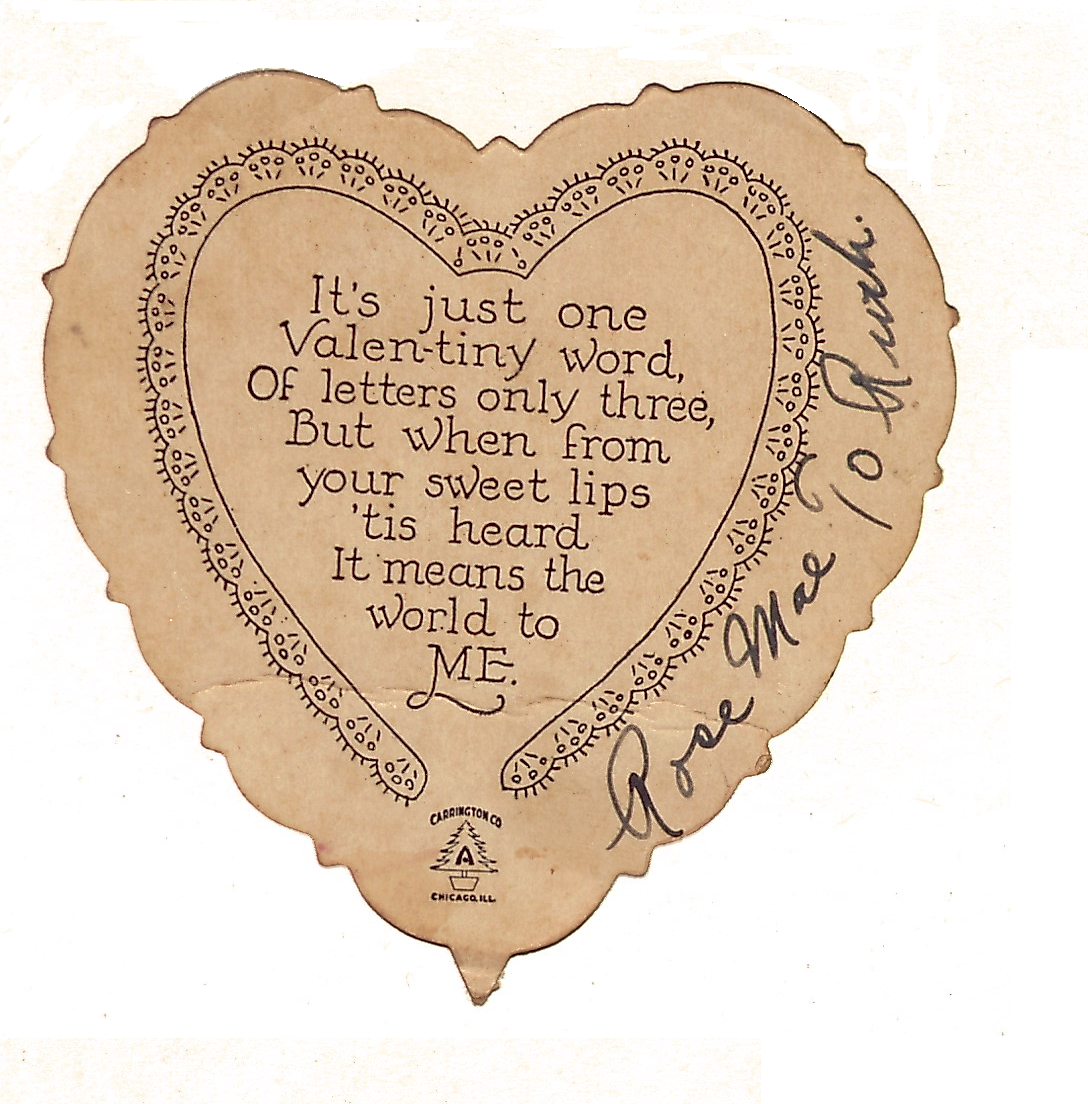 It's just one
Valen-tiny word,
Of letters only three,
But when from
your sweet lips
'tis heard
It means the
world to
ME.
CARRINGTON CO
A
CHICAGO, ILL.
Rose Mae To Ruth.